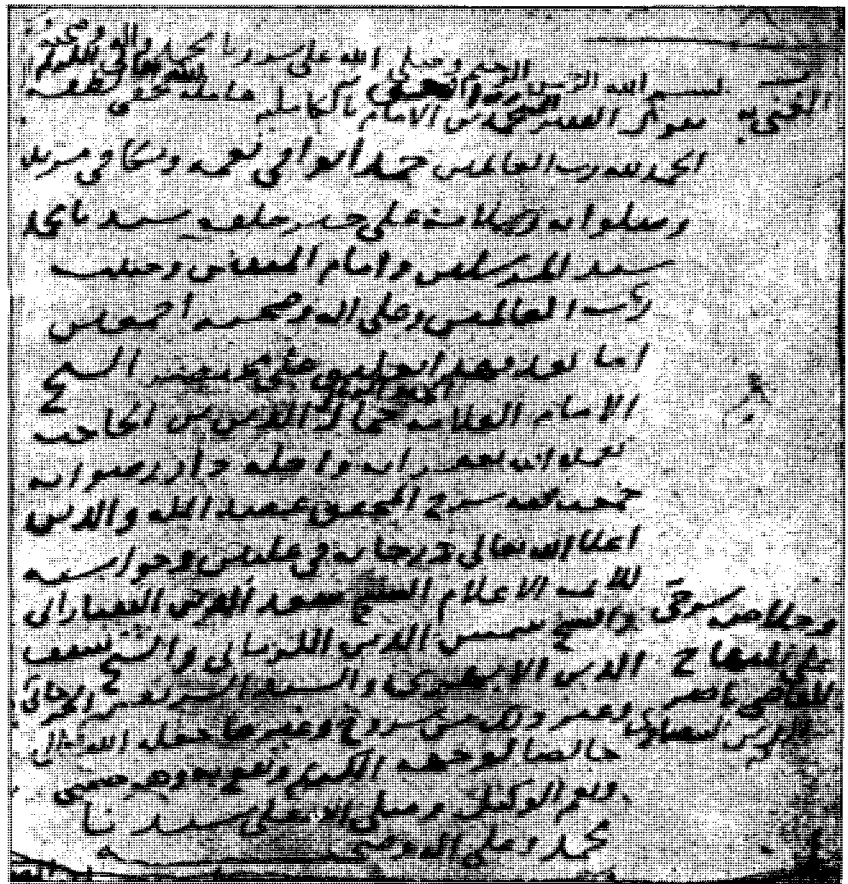 بسم الله الرحمن الرحيم وصلى الله على سيدنا محمد واله وصحبه
يقول الفقير محمد بن الامام بالكامليه عامله بخفي لطفه
الحمد لله رب العالمين حمدا يوافي نعمه ويكافي مزيده
وصلواته وسلامه على خير خلقه سيدنا محمد
سيد المرسلين وامام المتقين وحبيب
رب العالمين وعلى اله وصحبه اجمعين
اما بعد فهذا تعليق على مختصر الشيخ
الامام العلامة جمال الدين بن الحاجب
تغمده الله بغفرانه واحله دار رضوانه
جمعته من شرح المحقق عضد المله والدين
اعلا الله تعالى درجاته في عليين وحواشيه
للايمه الاعلام الشيخ سعد الدين التفتازاني
والشيخ شمس الدين الكرماني والشيخ سيف
الدين الابهري والسيد الشريف الجرجاني
وغير ذلك من شروح وغيرها جعله الله تعالى
خالصا لوجهه الكريم ونفع به وهو حسبي
ونعم الوكيل وصلى الله على سيدنا
محمد وعلى اله وصحبه
وخلاص شرحي
على المنهاج
للقاضي ناصر
الدين البيضاوي